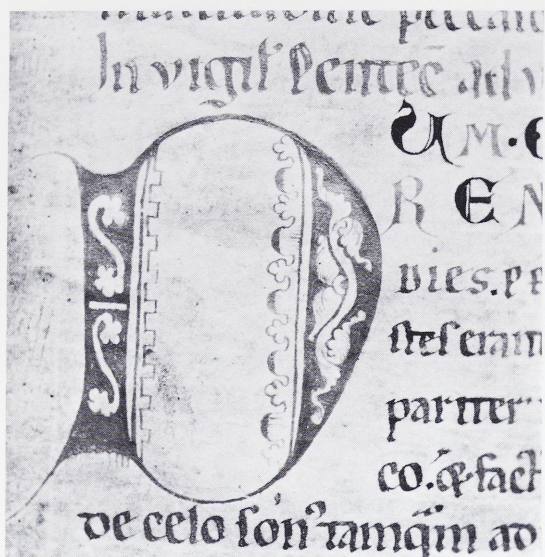 In vigil̄ Pentec̄ ad v
D UM·C
REN
DIES. PE
ſteſ erant
pariter
co. & fact
de celo ſonꝰ tamqͣm ad